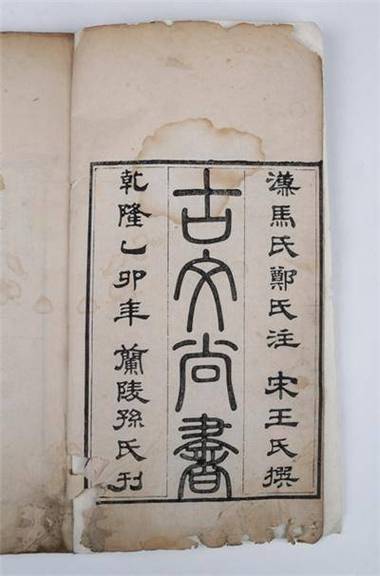 漢馬氏鄭氏注 宋王氏撰
古文尚書
乾隆乙卯年 蘭陵孫氏刊